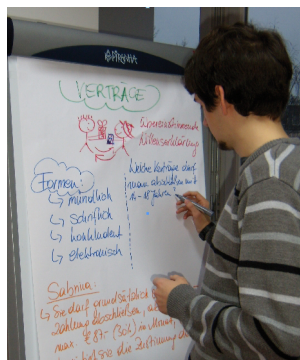 VERTRÄGE
übereinstimmende
Willenserklärung
Formen:
↳ mündlich
↳ schriftlich
↳ konkludent
↳ elektronisch
Welche Verträge darf
man abschließen mit
Sabrina:
↳ Sie darf grundsätzlich
zahlung abschließen,
max. € 87.- (30%) im Monat,
sie die Zustimmung